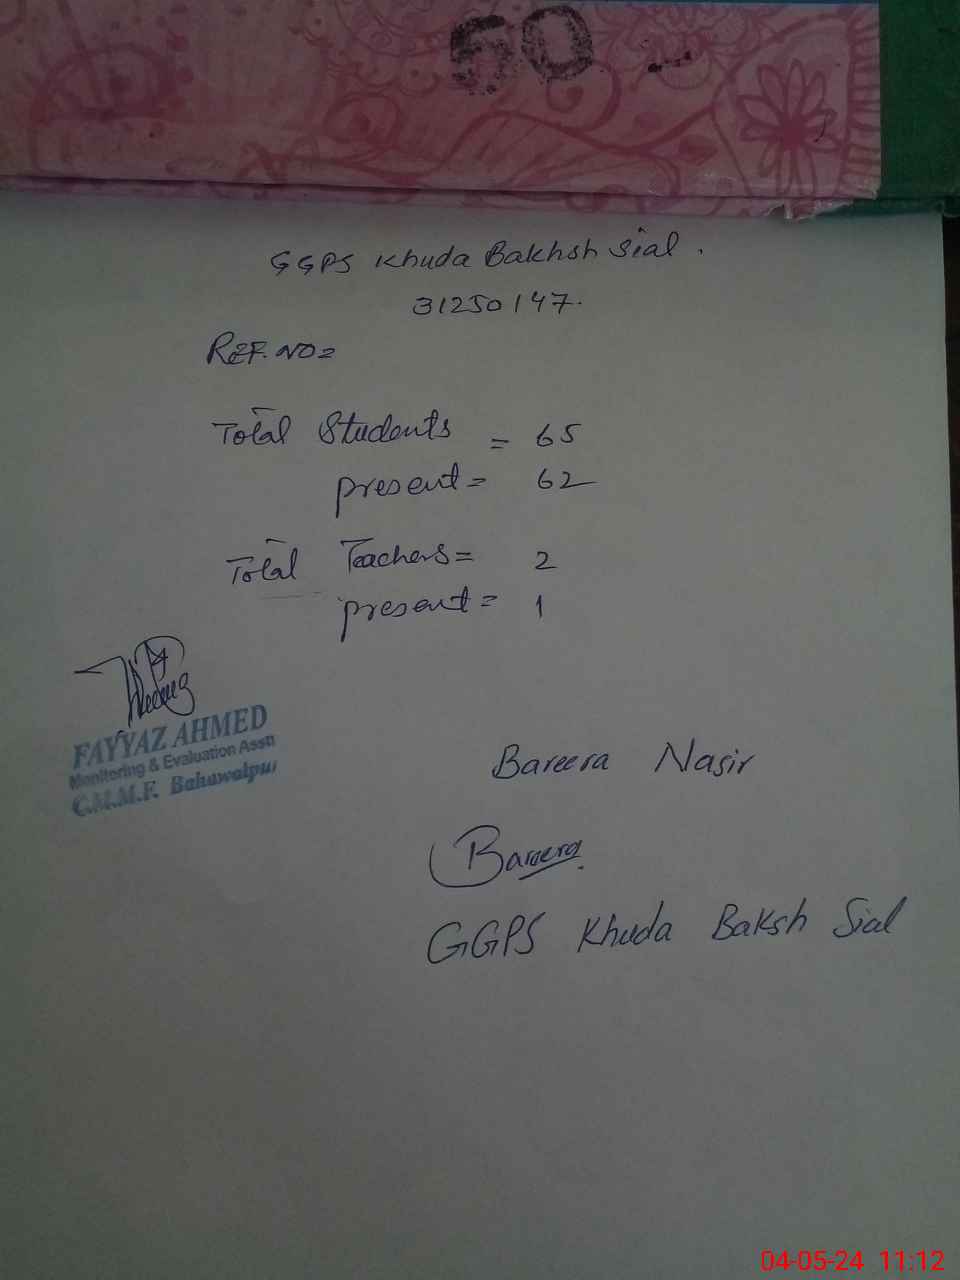 50
GGPS Khuda Bakhsh Sial.
31250147.
REF. NO=
Total Students = 65
present = 62
Total Teachers = 2
present = 1
FAYYAZ AHMED
Monitoring & Evaluation Asstt
C.M.M.F. Bahawalpur
Bareera Nasir
Bareera
GGPS Khuda Baksh Sial
04-05-24 11:12